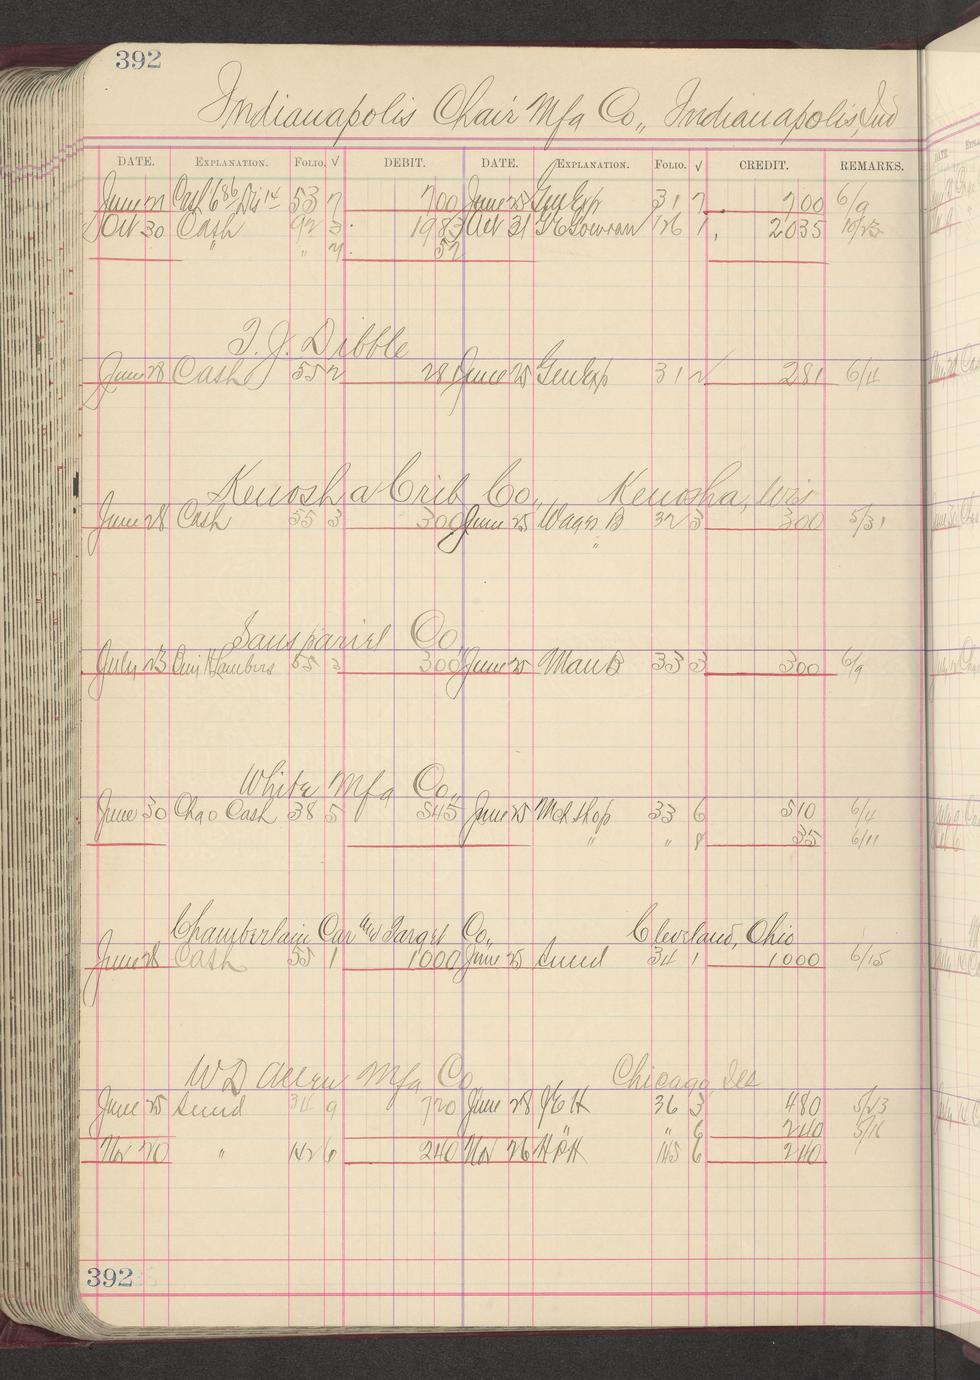 392
Indianapolis Chair Mfg Co,, Indianapolis, Ind
DATE. EXPLANATION. FOLIO. √ DEBIT. DATE. EXPLANATION. FOLIO. √ CREDIT. REMARKS.
June 27 Cash 686 Dis 14 53 2 700 June 25 Gen Exp 31 2 700 6/9
Oct 30 Cash 92 3 1983 Oct 31 126 1 2035 10/23
" " 4 52
T. J. Dibble
June 28 Cash 55 2 281 June 25 Gen Exp 31 2 281 6/11
Kenosha Crib Co,, Kenosha, Wis
June 28 Cash 55 3 300 June 25 Wagn B 32 3 300 5/31
"
Co,,
July 23 55 3 300 June 25 Man B 33 3 300 6/9
White Mfg Co,,
June 30 Chgo Cash 38 5 545 June 25 Mch Shop 33 6 510 6/4
" " 8 35 6/11
Chamberlain Car and Target Co,, Cleveland, Ohio
June 28 Cash 55 1 1000 June 25 Sund 34 1 1000 6/15
W D Allen Mfg Co Chicago Ills
June 25 Sund 34 9 720 June 28 36 3 480 5/23
" 6 240 5/16
Nov 20 " 142 6 240 Nov 26 145 6 240
392